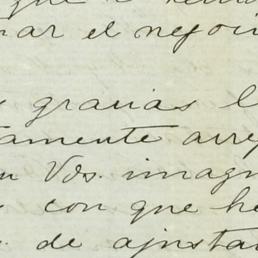 que
nar el negoci
gracias l
tamente arre
n Vds. imagn
con que he
de ajustar